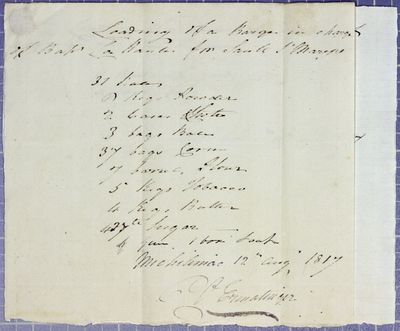 Loading of a Barge in charge
of Bapt La for Sault St Maryes
31 Bales
Kegs Powder
2 Cases
3 bags Ball
37 bags Corn
7 barrels Flour
5 Kegs Tobacco
Keg Butter
Sugar
1 box
Michilimac 12th Augt 1817
Ermatinger